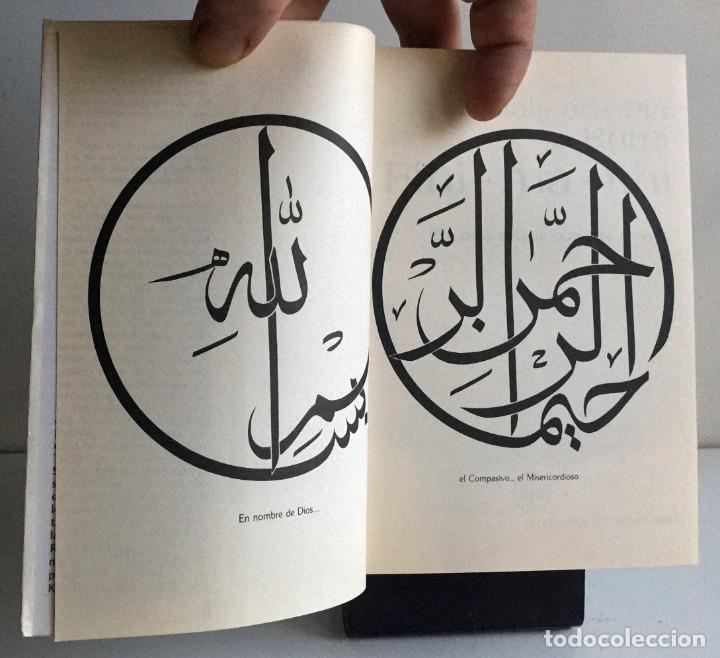 بسم
اللهِ
En nombre de Dios...
الرحمن
الرحيم
el Compasivo... el Misericordioso
todocoleccion.net